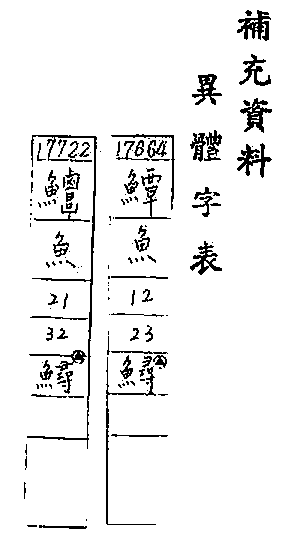 補充資料
異體字表
17664
鱏
魚
12
23
鱘
17722
魚
21
32
鱘